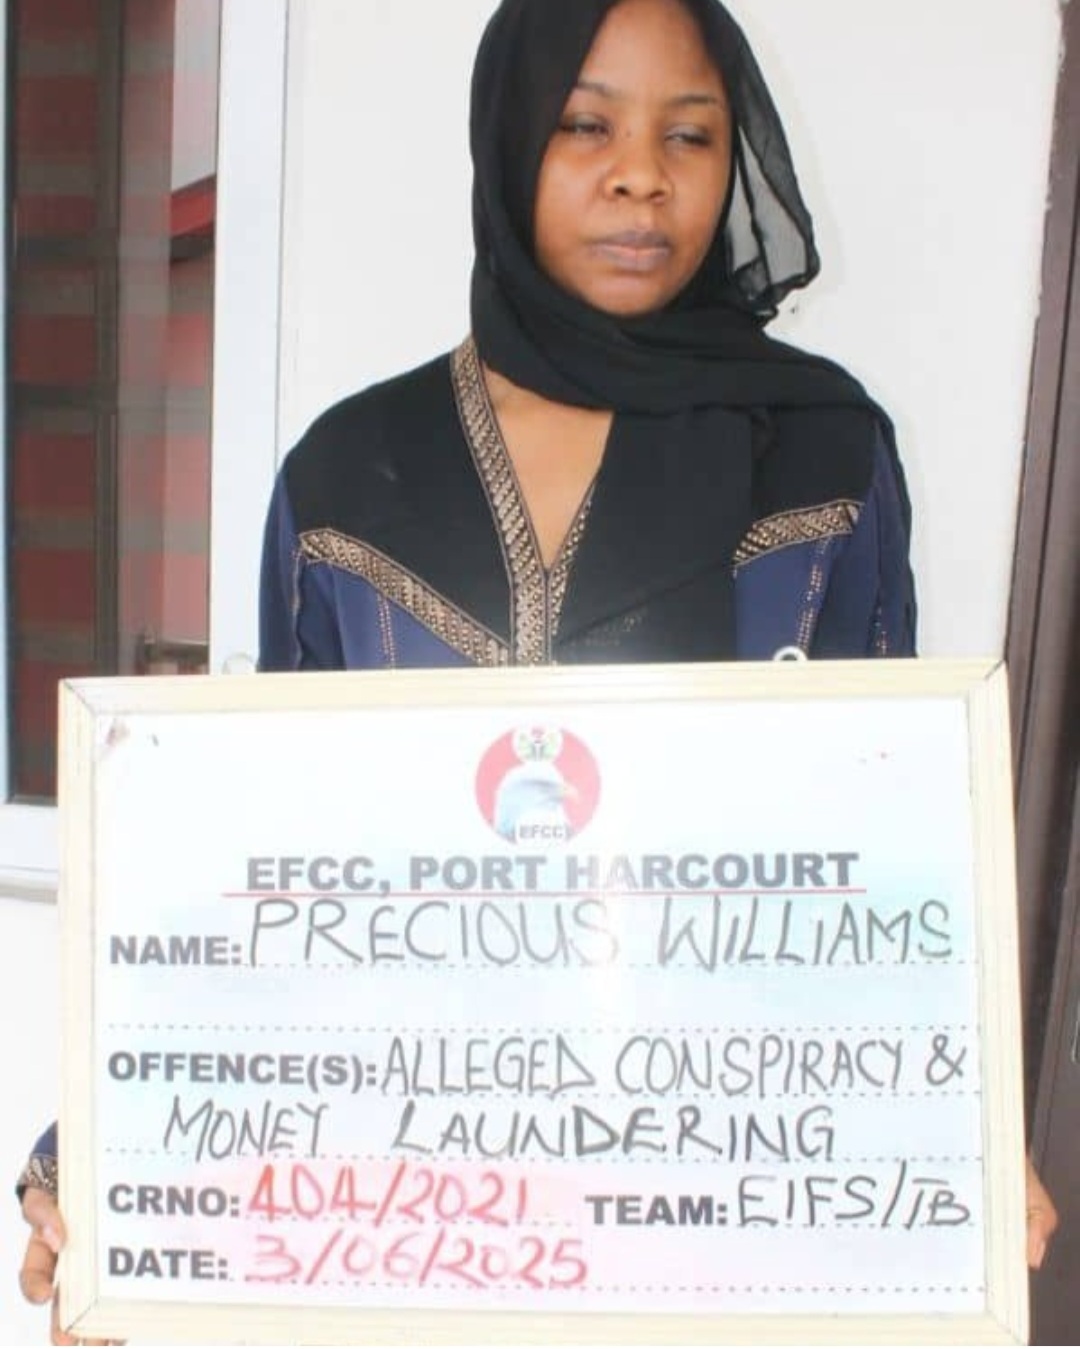 EFCC
EFCC, PORT HARCOURT
NAME: PRECIOUS WILLIAMS
OFFENCE(S): ALLEGED CONSPIRACY &
MONEY LAUNDERING
CRNO: 404/2021 TEAM: EIFS/TB
DATE: 3/06/2025